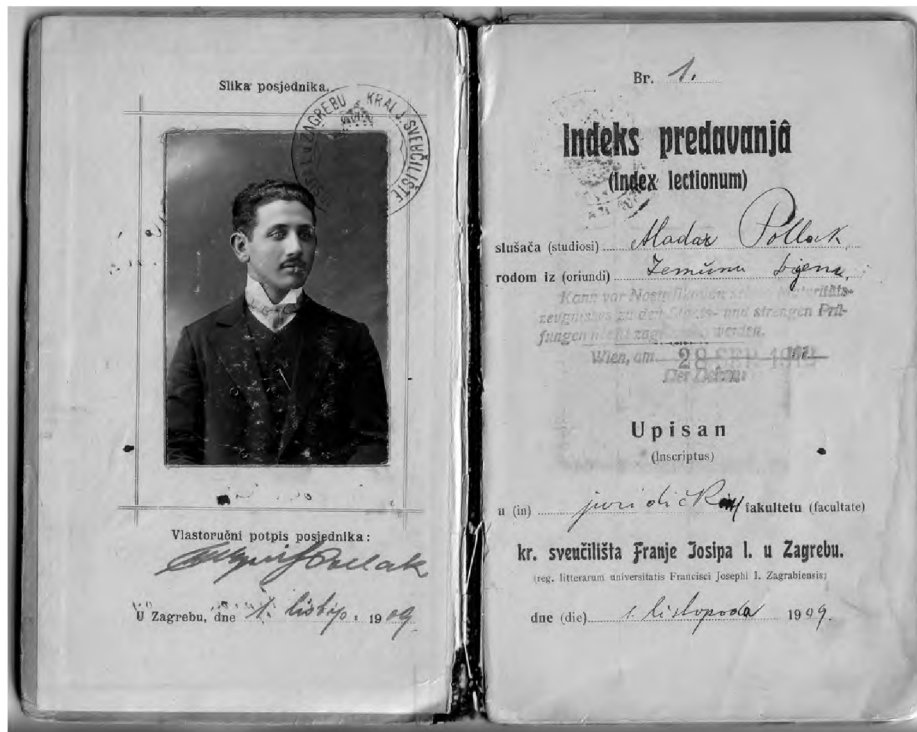 Slika posjednika.
KRALJ. SVEUČILIŠTE
U ZAGREBU
Vlastoručni potpis posjednika:
Pollak
U Zagrebu, dne 1. listop. 1909.
Br. 1.
Indeks predavanjâ
(Index lectionum)
slušača (studiosi) Aladar Pollak,
rodom iz (oriundi) Zemuna
Kann vor Nostrifikation seines Maturitäts-
zeugnisses zu den Staats- und strengen Prü-
fungen nicht zugelassen werden.
Wien, am 28 SEP.
Der Dekan:
Upisan
(Inscriptus)
u (in) juridički fakultetu (facultate)
kr. sveučilišta Franje Josipa I. u Zagrebu.
(reg. litterarum universitatis Francisci Josephi I. Zagrabiensis)
dne (die) 1. listopada 1909.